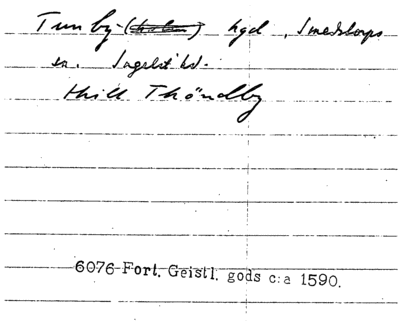 Tunby (holm) hgd, Smedstorps
sn. Ingelst. hd.
Thill Thöndby
6076 Fort. Geistl. gods c:a 1590.